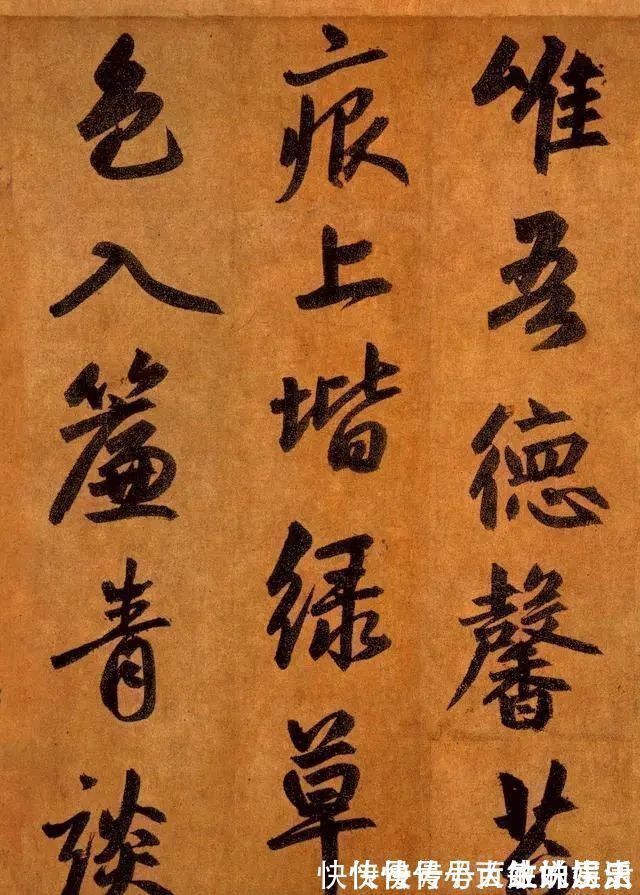 惟吾德馨苔
痕上堦綠草
色入簾青談